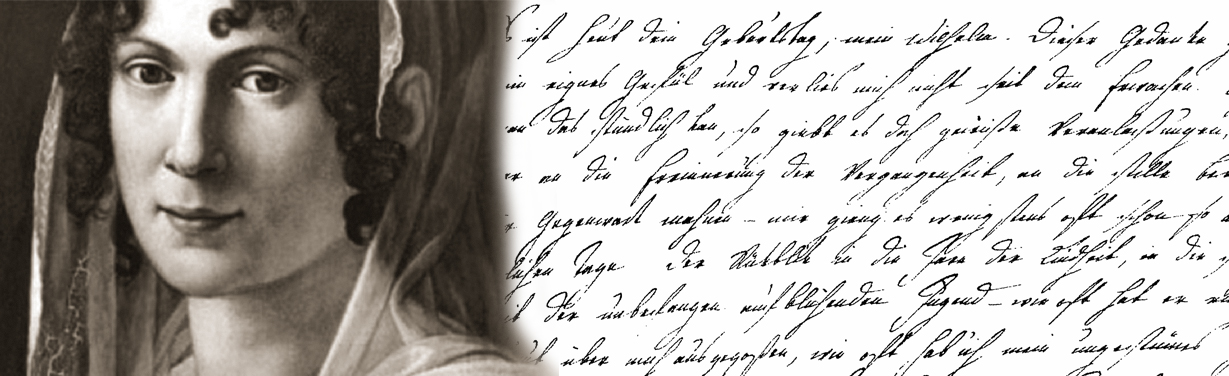 ist heut dein Geburtstag, mein Wilhelm. Dieser Gedanke
eignes Gefül und verlies mich nicht seit dem Erwachen.
das so giebt es doch gewisse Veranlassungen,
an die Erinnerung der Vergangenheit, an die stille
Gegenwart mahnen – mir gieng es wenigstens oft schon so
Tage der Rükblik in die Jare der Kindheit, in die
der unbefangen aufblühenden Jugend – wie oft hat er
über mich ausgegossen, wie oft hab' ich mein ungestümes